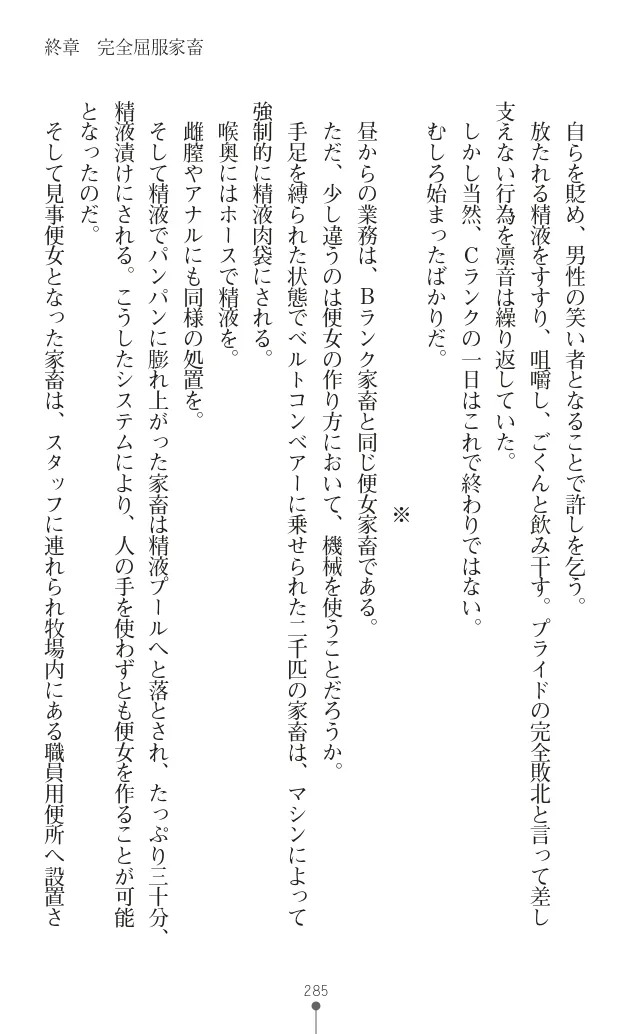 終章　完全屈服家畜
　自らを貶め、男性の笑い者となることで許しを乞う。
　放たれる精液をすすり、咀嚼し、ごくんと飲み干す。プライドの完全敗北と言って差し
支えない行為を凛音は繰り返していた。
　しかし当然、Ｃランクの一日はこれで終わりではない。
　むしろ始まったばかりだ。
※
　昼からの業務は、Ｂランク家畜と同じ便女家畜である。
　ただ、少し違うのは便女の作り方において、機械を使うことだろうか。
　手足を縛られた状態でベルトコンベアーに乗せられた二千匹の家畜は、マシンによって
強制的に精液肉袋にされる。
　喉奥にはホースで精液を。
　雌膣やアナルにも同様の処置を。
　そして精液でパンパンに膨れ上がった家畜は精液プールへと落とされ、たっぷり三十分、
精液漬けにされる。こうしたシステムにより、人の手を使わずとも便女を作ることが可能
となったのだ。
　そして見事便女となった家畜は、スタッフに連れられ牧場内にある職員用便所へ設置さ
285